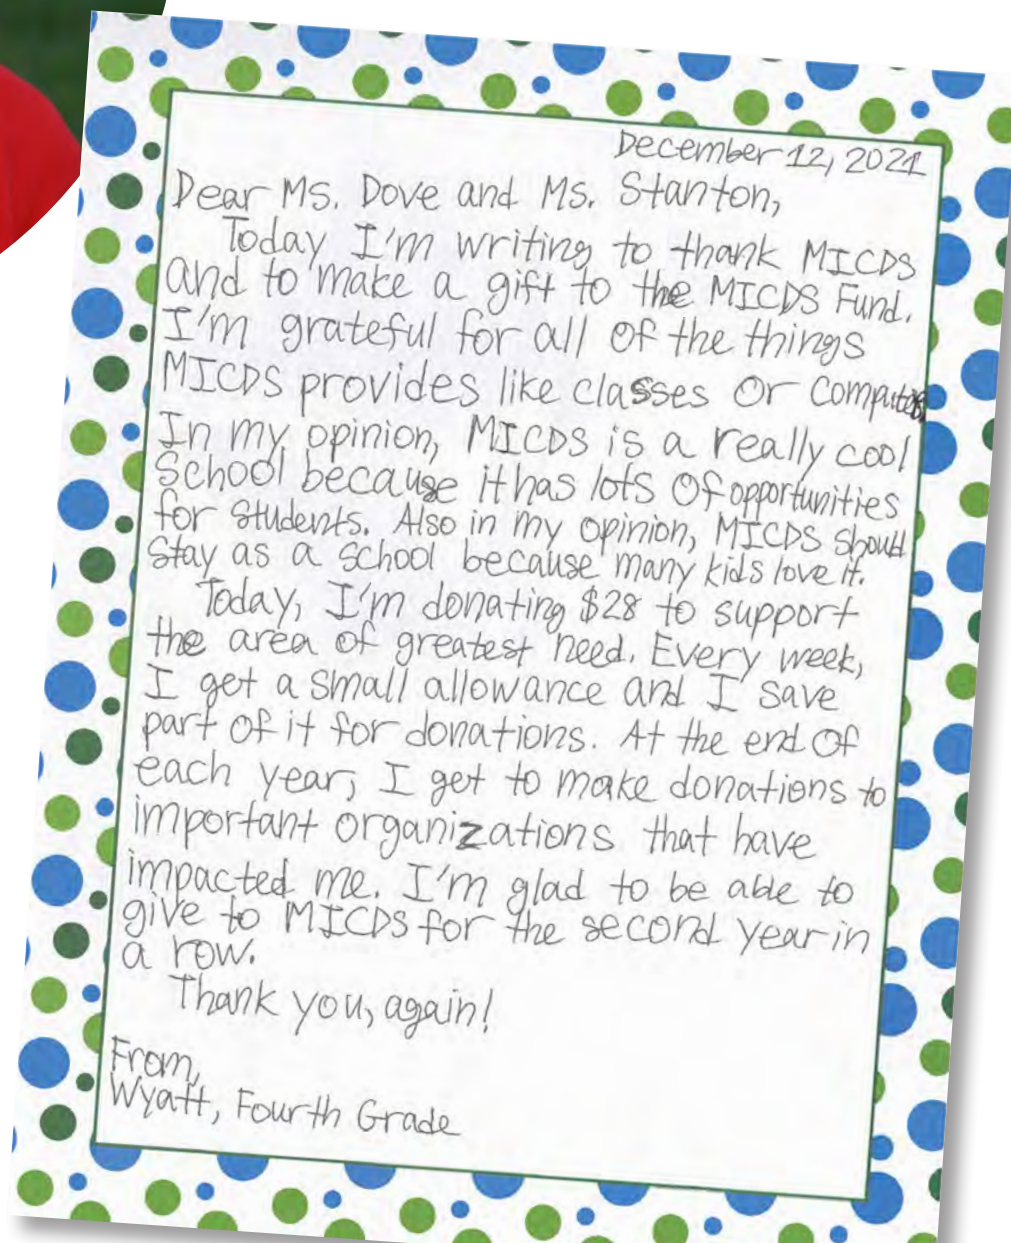 December 12, 2021
Dear Ms. Dove and Ms. Stanton,
Today I'm writing to thank MICDS
and to make a gift to the MICDS Fund.
I'm grateful for all of the things
MICDS provides like classes or computers.
In my opinion, MICDS is a really cool
school because it has lots of opportunities
for students. Also in my opinion, MICDS should
stay as a school because many kids love it.
Today, I'm donating $28 to support
the area of greatest need. Every week,
I get a small allowance and I save
part of it for donations. At the end of
each year, I get to make donations to
important organizations that have
impacted me. I'm glad to be able to
give to MICDS for the second year in
a row.
Thank you, again!
From,
Wyatt, Fourth Grade